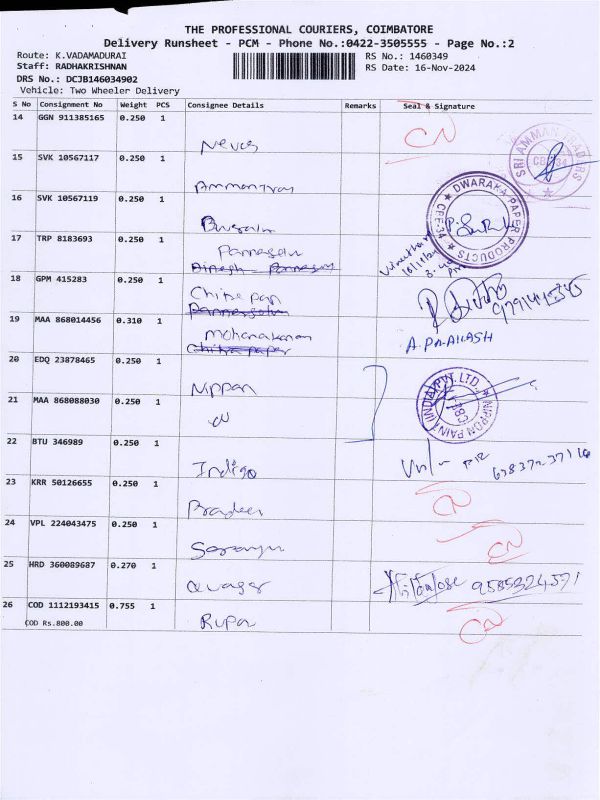 THE PROFESSIONAL COURIERS, COIMBATORE
Delivery Runsheet - PCM - Phone No.:0422-3505555 - Page No.:2
Route: K.VADAMADURAI
RS No.: 1460349
Staff: RADHAKRISHNAN
RS Date: 16-Nov-2024
DRS No.: DCJB146034902
Vehicle: Two Wheeler Delivery
S No Consignment No Weight PCS Consignee Details Remarks Seal & Signature
14 GGN 911385165 0.250 1
CN
SRI AMMAN TRADERS
15 SVK 10567117 0.250 1
16 SVK 10567119 0.250 1
DWARAKA PAPER PRODUCTS
CBE-34
17 TRP 8183693 0.250 1
18 GPM 415283 0.250 1
19 MAA 868014456 0.310 1
Mohanakannan
20 EDQ 23878465 0.250 1
Nippan
NIPPON PAINT (INDIA) PVT. LTD.
21 MAA 868088030 0.250 1
22 BTU 346989 0.250 1
Indigo
23 KRR 50126655 0.250 1
Pradeep
CN
24 VPL 224043475 0.250 1
CN
25 HRD 360089687 0.270 1
9585324571
26 COD 1112193415 0.755 1
COD Rs.800.00
Rupa
CN